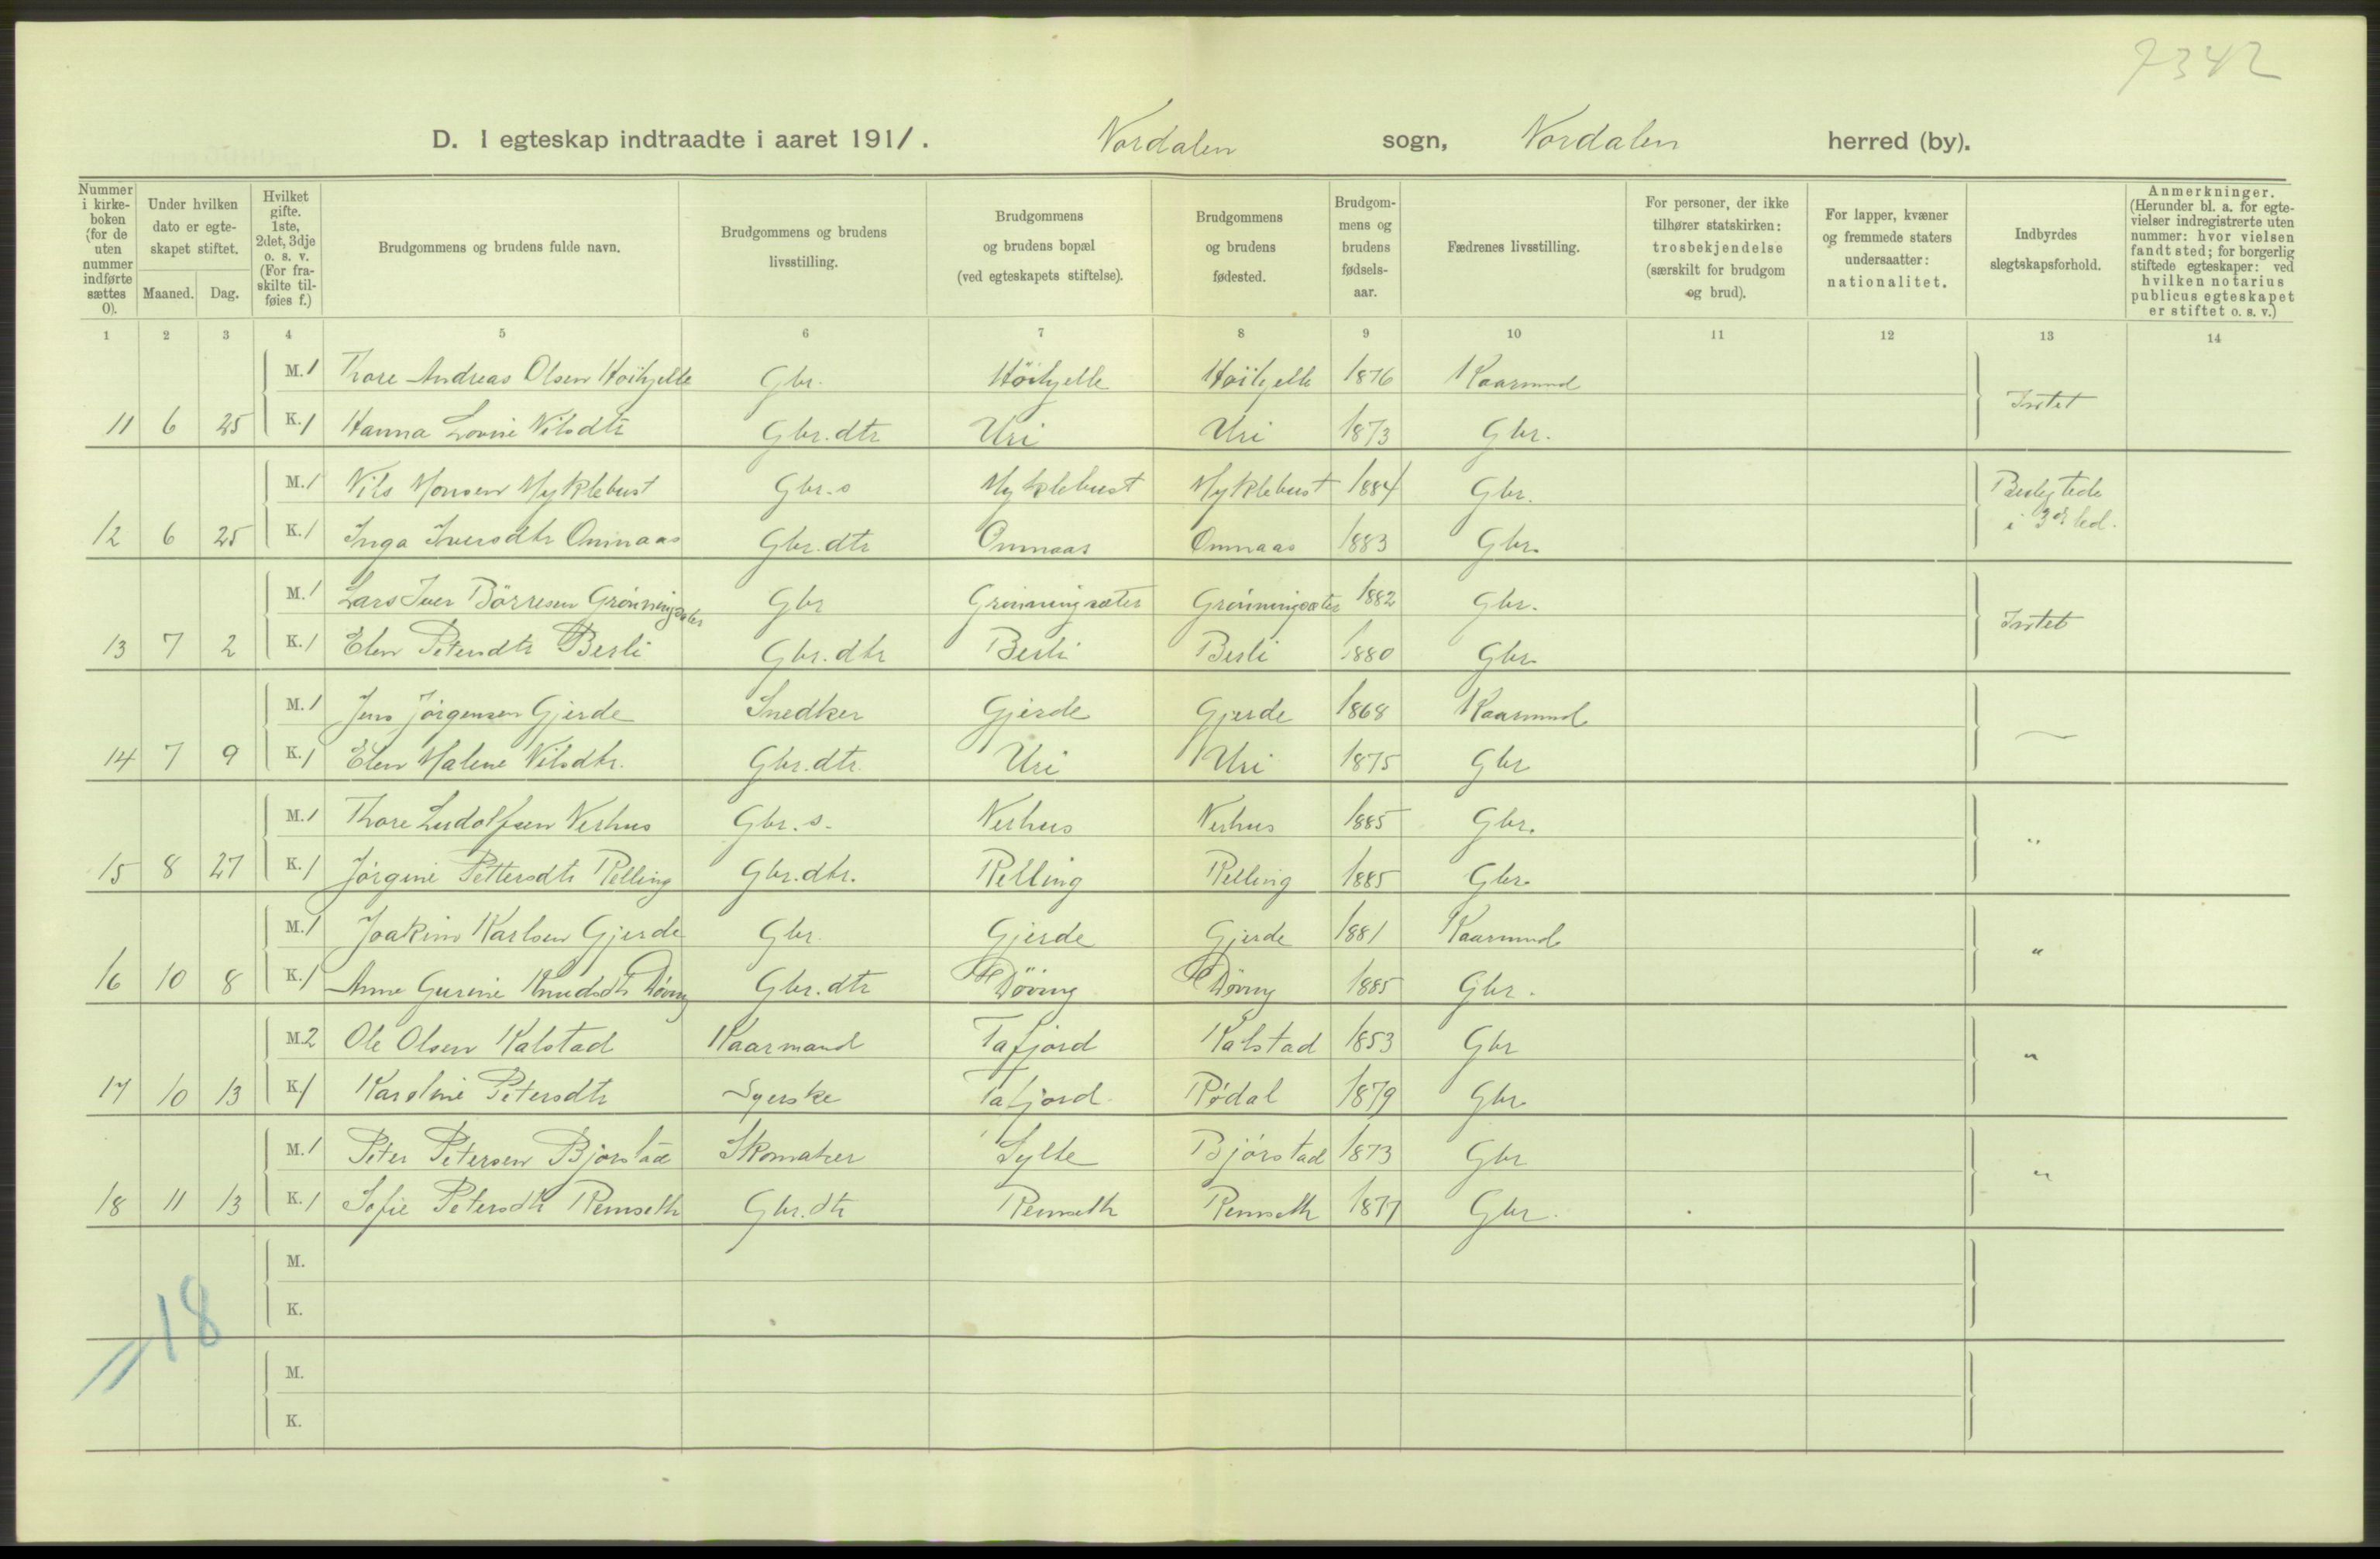 7342
D. I egteskap indtraadte i aaret 1911. Nordalen sogn, Nordalen herred (by).
Nummer i kirke- boken (for de uten nummer indførte sættes 0).
Under hvilken dato er egte- skapet stiftet.
Maaned. Dag.
Hvilket gifte. 1ste, 2det, 3dje o. s. v. (For fra- skilte til- føies f.)
Brudgommens og brudens fulde navn.
Brudgommens og brudens livsstilling.
Brudgommens og brudens bopæl (ved egteskapets stiftelse).
Brudgommens og brudens fødested.
Brudgom- mens og brudens fødsels- aar.
Fædrenes livsstilling.
For personer, der ikke tilhører statskirken: trosbekjendelse (særskilt for brudgom og brud).
For lapper, kvæner og fremmede staters undersaatter: nationalitet.
Indbyrdes slegtskapsforhold.
Anmerkninger. (Herunder bl. a. for egte- vielser indregistrerte uten nummer: hvor vielsen fandt sted; for borgerlig stiftede egteskaper: ved hvilken notarius publicus egteskapet er stiftet o. s. v.)
1 2 3 4 5 6 7 8 9 10 11 12 13 14
M. 1 Thore Andreas Olsen Höihjelle Gbr. Höihjelle Höihjelle 1876 Kaarmand
11 6 25 K. 1 Hanna Lovise Nilsdtr Gbr. dtr Uri Uri 1873 Gbr. Intet
M. 1 Nils Monsen Myklebust Gbr. s Myklebust Myklebust 1884 Gbr. Beslegtede
12 6 25 K. 1 Inga Iversdtr Ommaas Gbr. dtr Ommaas Ommaas 1883 Gbr. i 3die led.
M. 1 Lars Iver Börresen Grönningsæter Gbr Grönningsæter Grönningsæter 1882 Gbr.
13 7 2 K. 1 Elen Petersdtr Berli Gbr. dtr Berli Berli 1880 Gbr. Intet
M. 1 Jens Jörgensen Gjerde Snedker Gjerde Gjerde 1868 Kaarmand
14 7 9 K. 1 Elen Malene Nilsdtr. Gbr. dtr. Uri Uri 1875 Gbr —
M. 1 Thore Ludolfsen Nerhus Gbr. s. Nerhus Nerhus 1885 Gbr.
15 8 27 K. 1 Jörgine Pettersdtr Relling Gbr. dtr. Relling Relling 1885 Gbr. "
M. 1 Joakim Karlsen Gjerde Gbr. Gjerde Gjerde 1881 Kaarmand
16 10 8 K. 1 Anne Gurine Knudsdtr Döving Gbr. dtr Döving Döving 1885 Gbr. "
M. 2 Ole Olsen Kalstad Kaarmand Tafjord Kalstad 1853 Gbr "
17 10 13 K. 1 Karoline Petersdtr Syerske Tafjord Rødal 1879 Gbr.
M. 1 Peter Petersen Bjørstad Skomaker Sylte Bjørstad 1873 Gbr
18 11 13 K. 1 Sofie Petersdtr Remseth Gbr. dtr Remseth Remseth 1877 Gbr. "
M.
K.
18
M.
K.